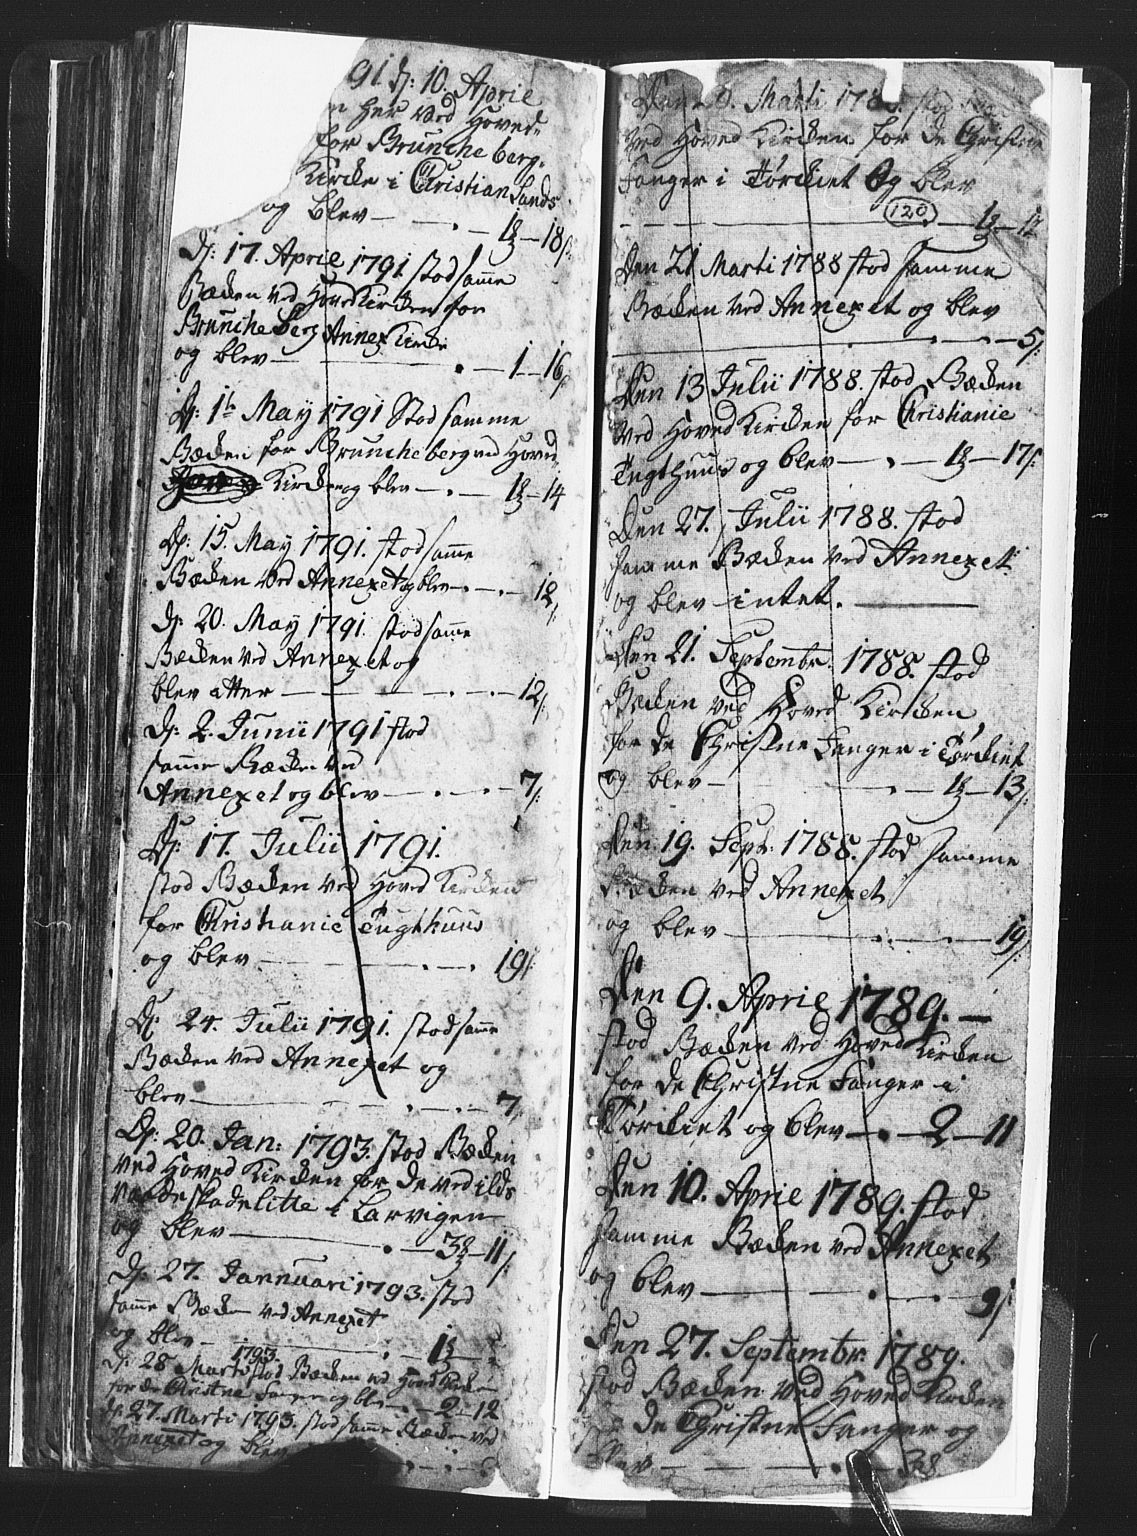 91 d: 10. Aprie
n her ved Hoved-
for Brunche berg-
Kirche i Christian Sands
og blev — 1 — 18 s:
D: 17. Aprie 1791 stod samme
Bæcken ved Hoved Kircken for
Brunche berg Annex Kirche
og blev — 1 — 16 s
D: 1te May 1791 Stod samme
Bæcken for Brunche berg ved Hoved-
Kircken og blev — 1 — 14
D: 15. May 1791. stod samme
Bæcken ved Annexet og blev — 12 s
D: 20. May 1791. stod samme
Bæcken ved Annexet og
blev atter — 12 s.
D: 2. Junii 1791 stod
samme Bæcken ved
Annexet og blev — 7 s.
D: 17. Julii 1791.
stod Bæcken ved Hoved Kircken
for Christianie Tugthuus
og blev — 19 s:
D: 24. Julii 1791. stod samme
Bæcken ved Annexet og
blev — 7.
D: 20. Jan: 1793. stod Bæcken
ved Hoved Kircken for de ved ilds
vaade skade litte i Larvigen
og blev — 3 — 11 s:
D: 27. Jannuari 1793. stod
samme Bæcken ved Annexet
og blev — 1
D: 28 Marti 1793. stod Bæcken ved Hoved Kircken
for de Christne Fanger og blev — 2 — 12
D: 27. Marti 1793. stod samme Bæcken ved
Annexet og blev
Den 20. Marti 178 stod
ved Hoved Kircken for de Christne
Fanger i Tørckiet Og blev
(120) 1 — 12
Den 21 Marti 1788 stod samme
Bæcken ved Annexet og blev
— 5 s:
Den 13 Julii 1788. stod Bæcken
ved Hoved Kircken for Christianie
Tugthuus og blev — 1 — 17 s:
Den 27. Julii 1788. stod
samme Bæcken ved Annexet
og blev intet. —
Den 21. Septembr. 1788. stod
Bæcken ved Hoved Kircken
for de Christne Fanger i Tørckiet
og blev — 1 — 13 s:
Den 19. Sept: 1788. stod samme
Bæcken ved Annexet
og blev — 19 s:
Den 9. Aprie 1789. —
stod Bæcken ved Hoved Kircken
for de Christne Fanger i
Tørckiet og blev — 2 — 11
Den 10. Aprie 1789. stod
samme Bæcken ved Annexet
og blev — 9 s
Den 27. Septembr. 1789.
stod Bæcken ved Hoved Kircken
de Christne Fanger og
blev —